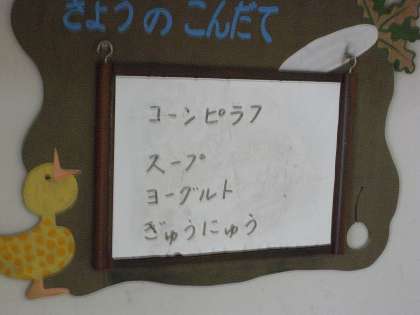 きょうのこんだて
コーンピラフ
スープ
ヨーグルト
ぎゅうにゅう